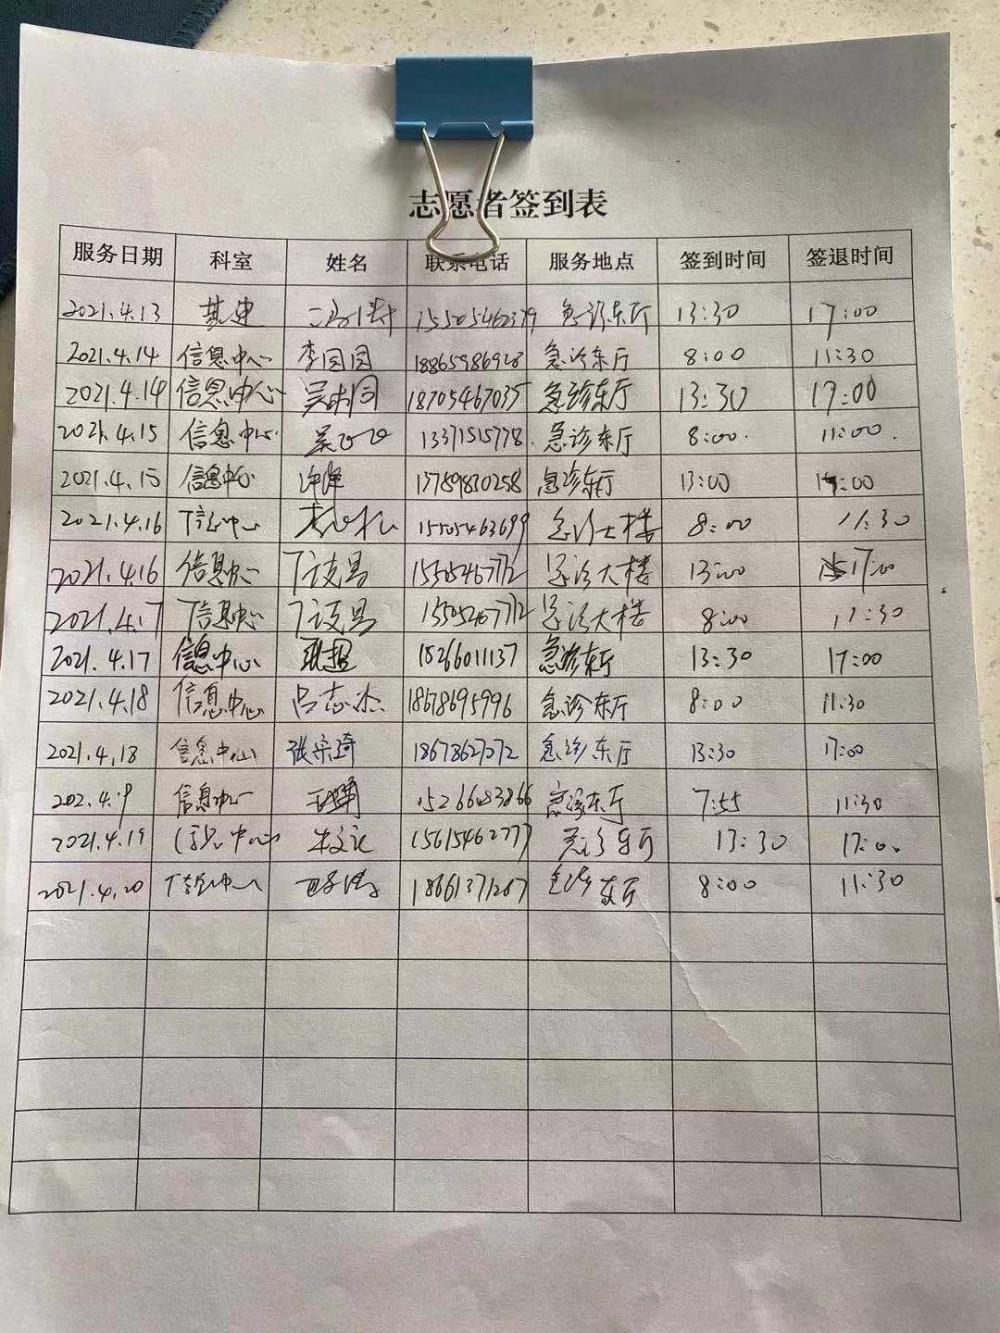 志愿者签到表
服务日期 科室 姓名 联系电话 服务地点 签到时间 签退时间
2021.4.13 基建 15505462379 急诊东厅 13:30 17:00
2021.4.14 信息中心 李园园 18865986928 急诊东厅 8:00 11:30
2021.4.14 信息中心 18705467035 急诊东厅 13:30 17:00
2021.4.15 信息中心 13371515778 急诊东厅 8:00 11:00
2021.4.15 信息中心 急诊东厅 13:00 17:00
2021.4.16 信息中心 15505463699 急诊大楼 8:00 11:30
2021.4.16 信息中心 15505467712 急诊大楼 13:00 17:00
2021.4.17 信息中心 15505467712 急诊大楼 8:00 11:30
2021.4.17 信息中心 18266011137 急诊东厅 13:30 17:00
2021.4.18 信息中心 吕志杰 18678695996 急诊东厅 8:00 11:30
2021.4.18 信息中心 张宗琦 18678627272 急诊东厅 13:30 17:00
202.4.19 信息中心 15266083866 急诊东厅 7:55 11:30
2021.4.19 信息中心 15615462777 急诊东厅 13:30 17:00
2021.4.20 信息中心 18661371267 急诊东厅 8:00 11:30